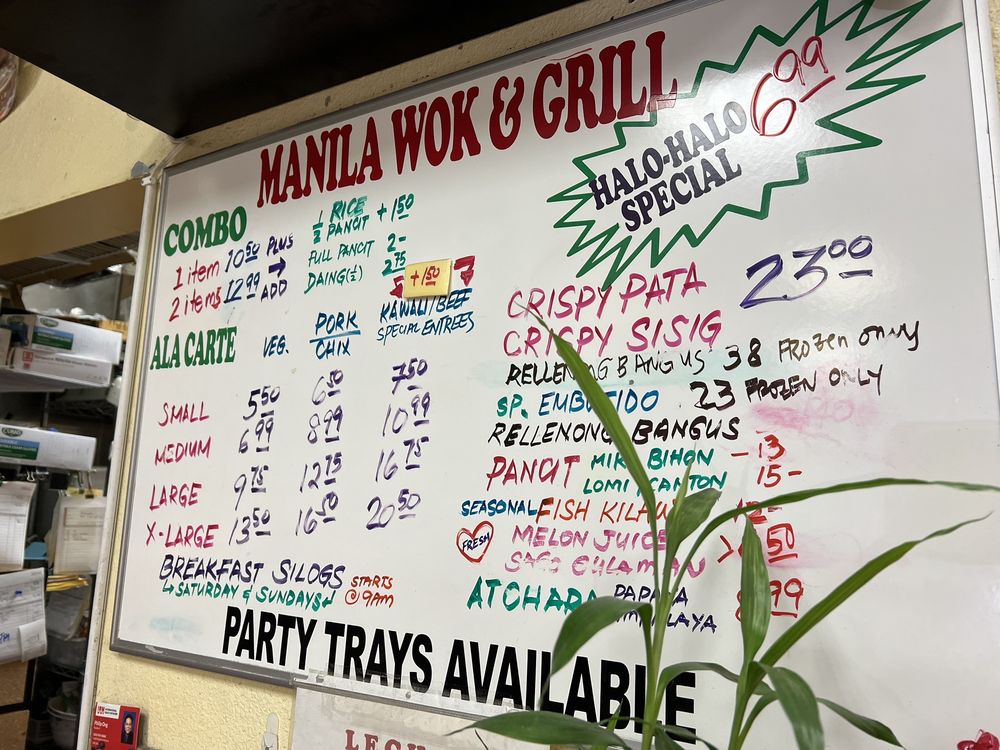 MANILA WOK & GRILL
HALO-HALO
SPECIAL
6 99
COMBO
1 item 10 50 PLUS
2 items 12 99 → ADD
½ RICE
½ PANCIT + 1 50
FULL PANCIT 2-
DAING (½) 2.75
+1 50
ALA CARTE
VEG.
PORK
CHIX
KAWALI/BEEF
SPECIAL ENTREES
SMALL 5 50 6 50 7 50
MEDIUM 6 99 8 99 10 99
LARGE 9 75 12 75 16 75
X-LARGE 13 50 16 50 20 50
BREAKFAST SILOGS
SATURDAY & SUNDAYS
STARTS
@ 9AM
CRISPY PATA 23 00
CRISPY SISIG
RELLENONG BANGUS 38 FROZEN ONLY
SP. EMBUTIDO 23 FROZEN ONLY
RELLENONG BANGUS
PANCIT MIKI BIHON - 13
LOMI CANTON 15 -
SEASONAL FISH
FRESH
MELON JUICE 50
GULAMAN
ATCHARA PAPAYA 99
PARTY TRAYS AVAILABLE